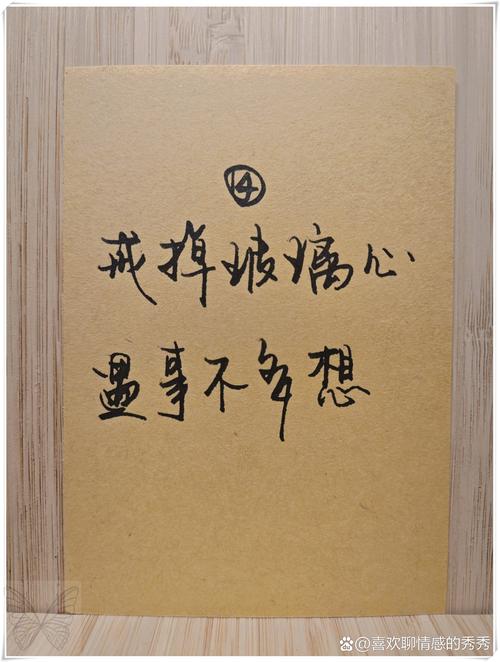 ⑭
戒掉玻璃心
遇事不多想
喜欢聊情感的秀秀